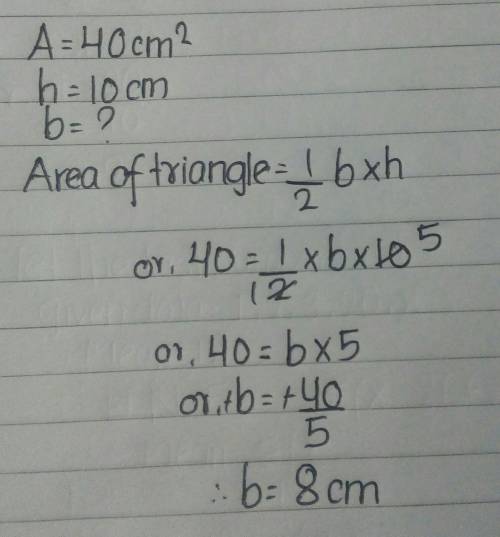 A = 40 cm²
h = 10 cm
b = ?
Area of triangle = 1/2 b × h
or, 40 = 1/1 2 × b × 10 5
or, 40 = b × 5
or, +b = +40/5
∴ b = 8 cm